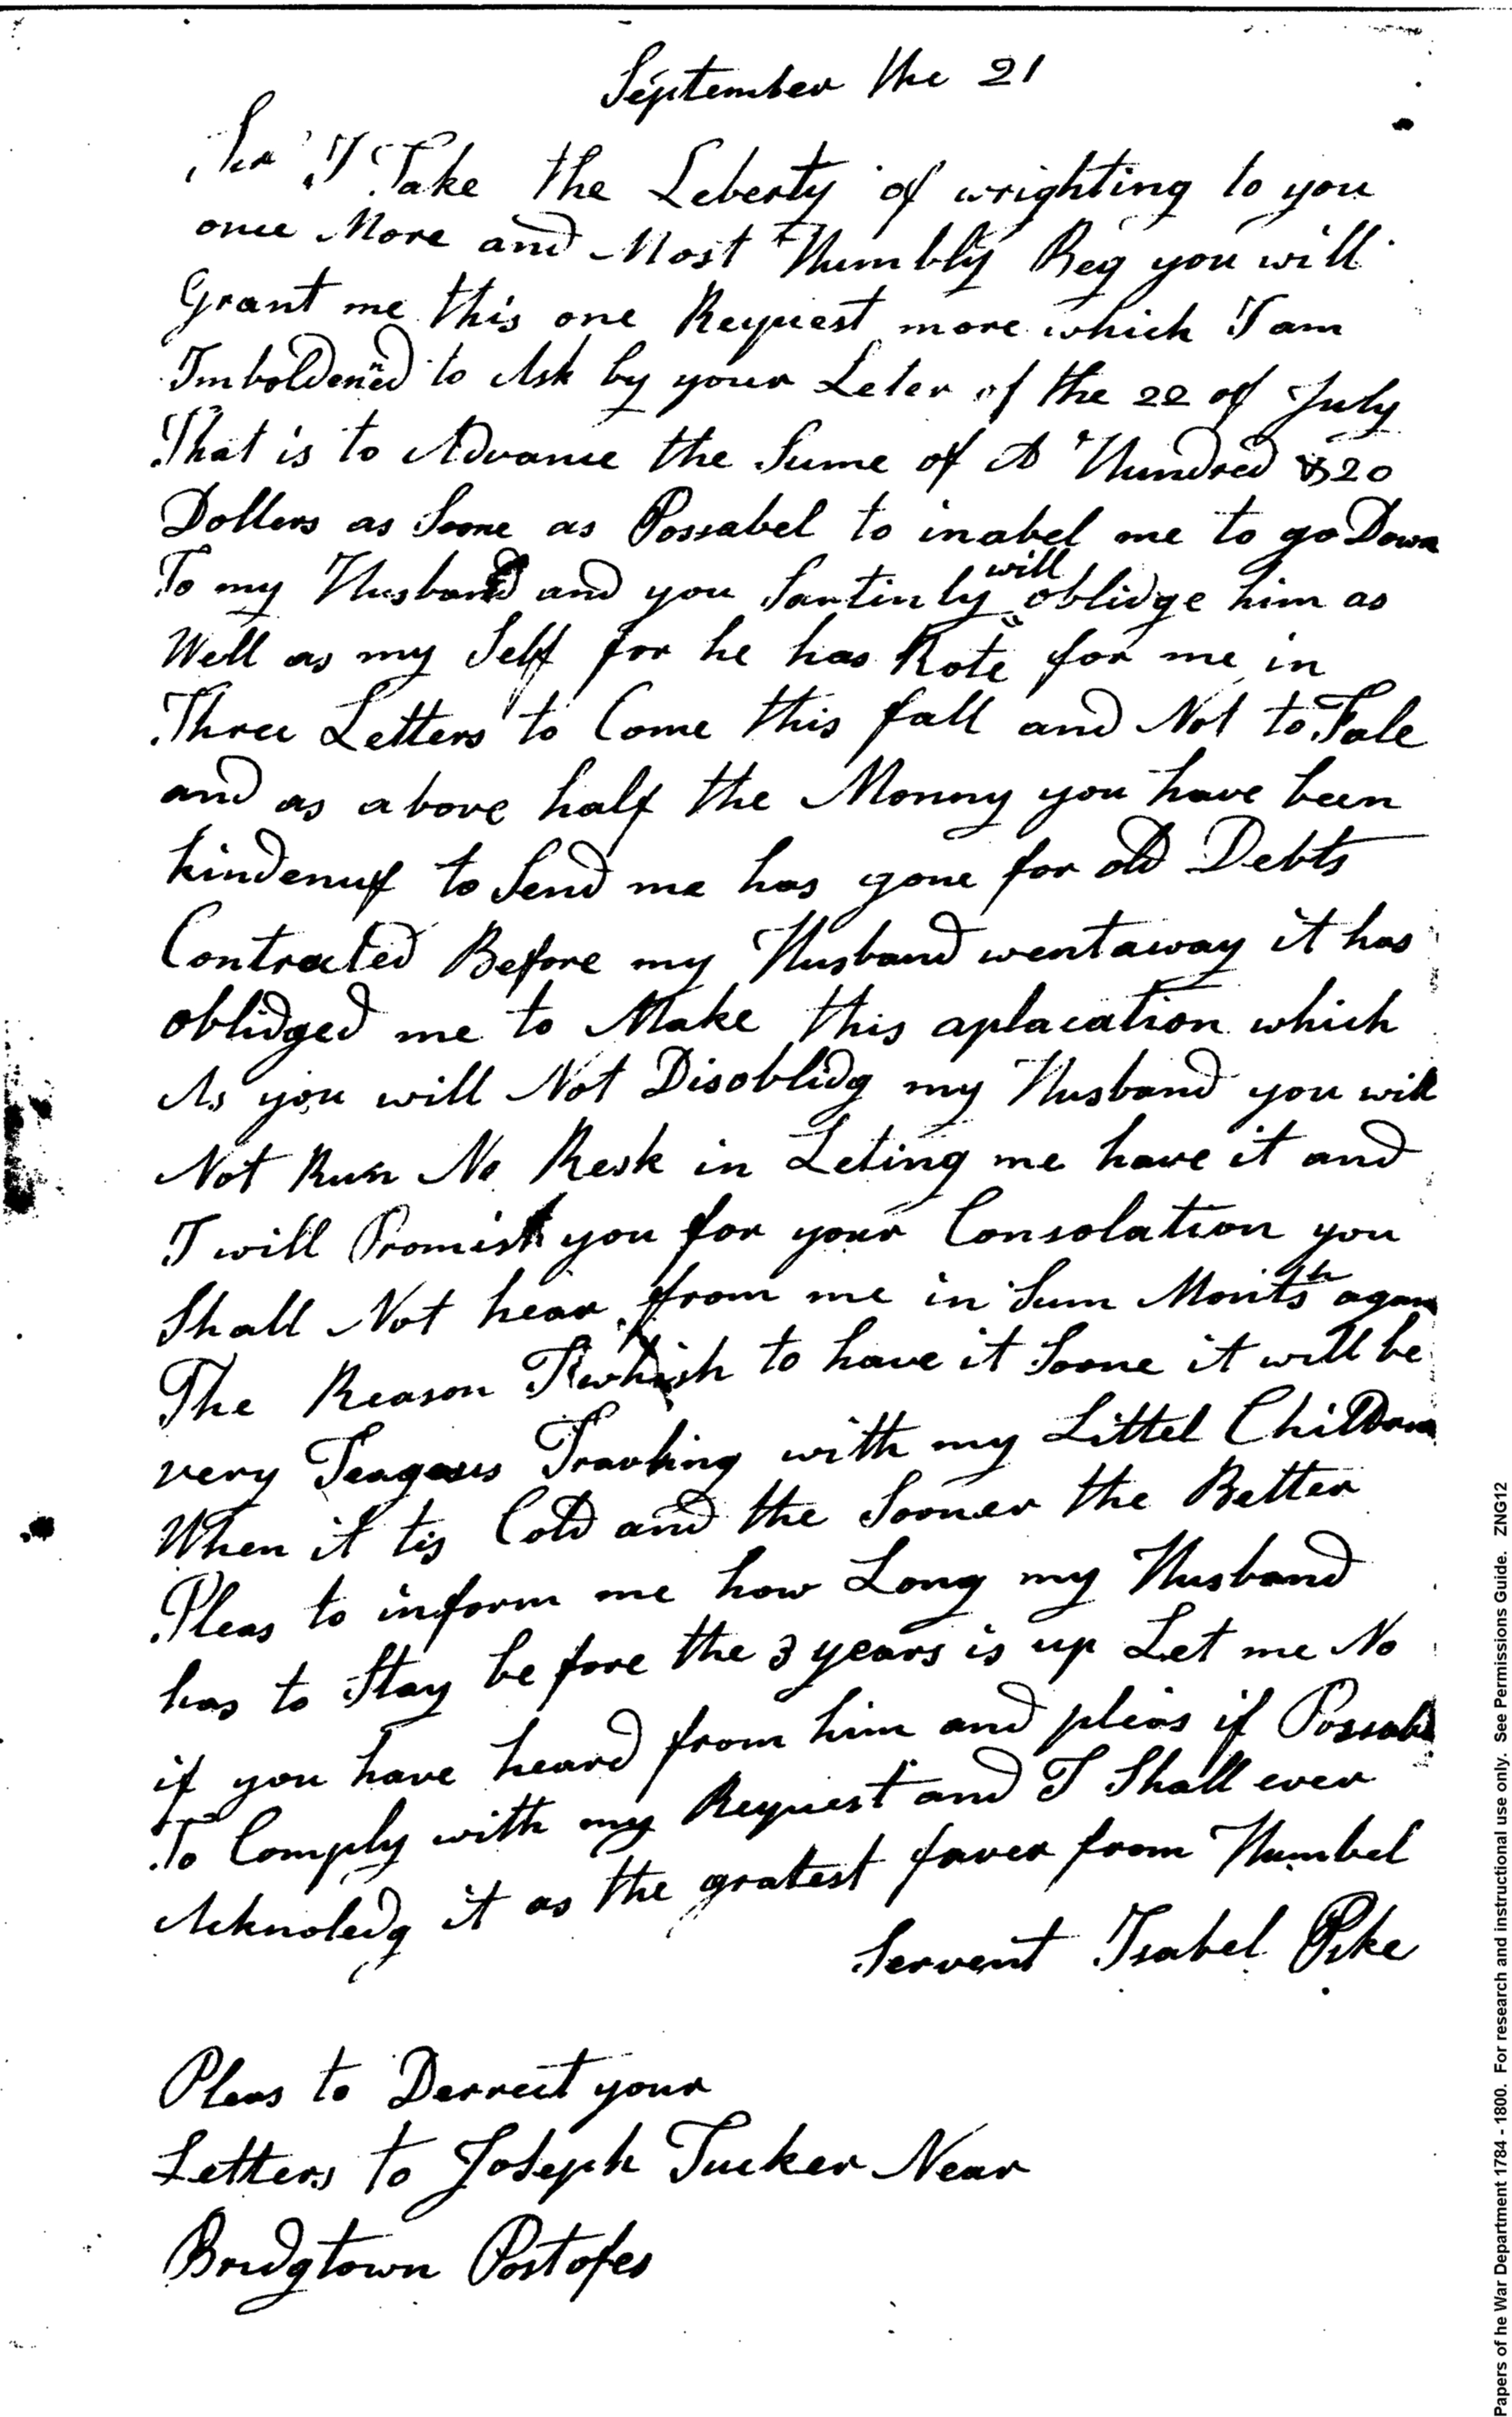 September the 21
Sir I Take the Leberty of wrighting to you
once More and Most Humbly Beg you will
Grant me this one Request more which I am
Imboldened to Ask by your Leter of the 22 of July
That is to Advance the Sume of A Hundred & 20
Dollers as Soone as Possabel to inabel me to go Down
To my Husband and you Sartinly will oblidge him as
Well as my Self for he has Rote for me in
Three Letters to Come this fall and Not to Fale
and as above half the Monny you have been
kindenuf to Send me has gone for old Debts
Contracted Before my Husband went away it has
oblidged me to Make this aplacation which
As you will Not Disoblidg my Husband you will
Not Run No Resk in Leting me have it and
I will Promist you for your Consolation you
Shall Not hear from me in Sum Months again
The Reason I whish to have it Soone it will be
very Teagous Travling with my Littel Childran
When it tis Cold and the Sooner the Better
Pleas to inform me how Long my Husband
has to Stay before the 3 years is up Let me No
if you have heard from him and pleas if Possabl
To Comply with my Request and I Shall ever
Acknoledg it as the gratest faver from Humbel
Servent Isabel Pike
Pleas to Derrect your
Letters to Joseph Tucker Near
Bridgtown Postofes
Papers of he War Department 1784 - 1800. For research and instructional use only. See Permissions Guide. ZNG12